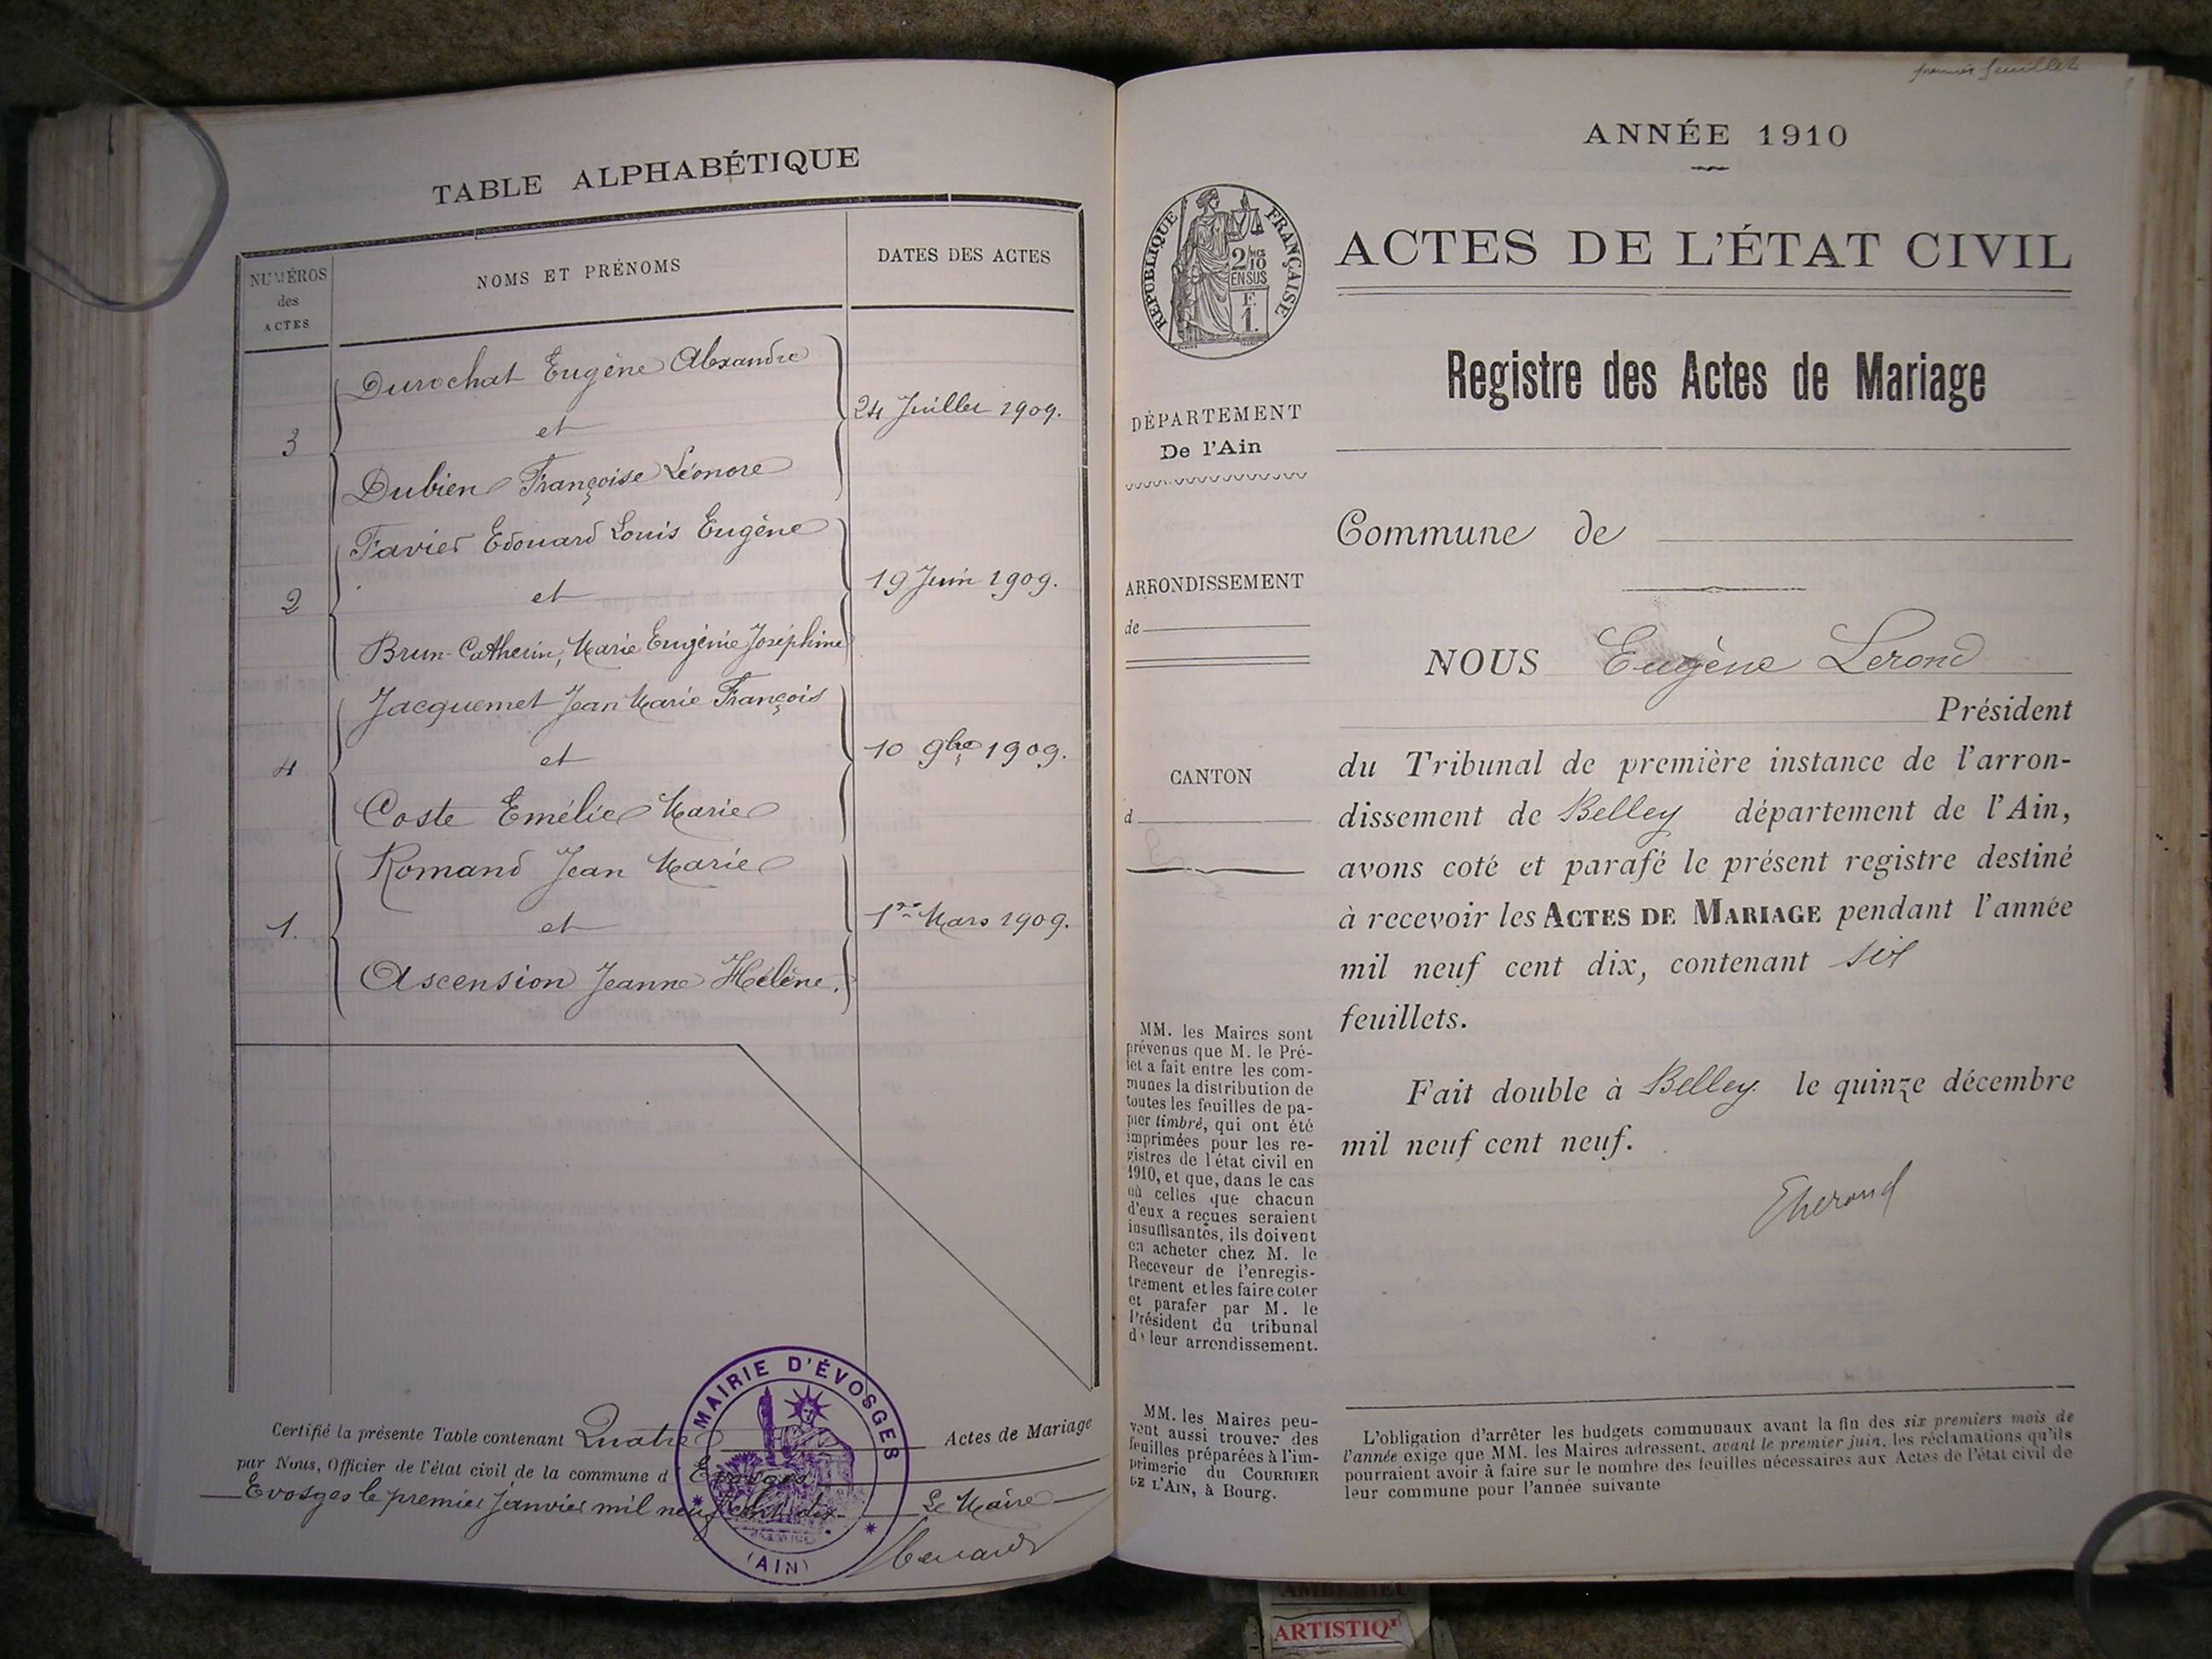 TABLE ALPHABÉTIQUE
NUMÉROS
des
ACTES
NOMS ET PRÉNOMS
DATES DES ACTES
Durochat Eugène Alexandre
3
et
24 Juillet 1909.
Dubien Françoise Léonore
Favier Edouard Louis Eugène
2
et
19 Juin 1909.
Brun-Catherin, Marie Eugénie Joséphine
Jacquemet Jean Marie François
4
et
10 9bre 1909.
Coste Emélie Marie
Romand Jean Marie
1.
et
1er Mars 1909.
Ascension Jeanne Hélène.
Certifié la présente Table contenant Quatre Actes de Mariage
par Nous, Officier de l'état civil de la commune d'Evosges
Evosges le premier janvier mil neuf cent dix. Le Maire
MAIRIE D'ÉVOSGES
(AIN)
premier feuillet
ANNÉE 1910
RÉPUBLIQUE FRANÇAISE
2/10
EN SUS
F.
1.
ACTES DE L'ÉTAT CIVIL
Registre des Actes de Mariage
DÉPARTEMENT
De l'Ain
ARRONDISSEMENT
de
CANTON
d
MM. les Maires sont
prévenus que M. le Pré-
fet a fait entre les com-
munes la distribution de
toutes les feuilles de pa-
pier timbré, qui ont été
imprimées pour les re-
gistres de l'état civil en
1910, et que, dans le cas
où celles que chacun
d'eux a reçues seraient
insuffisantes, ils doivent
en acheter chez M. le
Receveur de l'enregis-
trement et les faire coter
et parafer par M. le
Président du tribunal
de leur arrondissement.
MM. les Maires peu-
vent aussi trouver des
feuilles préparées à l'im-
primerie du COURRIER
DE L'AIN, à Bourg.
Commune de
NOUS Eugène Lerond
Président
du Tribunal de première instance de l'arron-
dissement de Belley département de l'Ain,
avons coté et parafé le présent registre destiné
à recevoir les ACTES DE MARIAGE pendant l'année
mil neuf cent dix, contenant six
feuillets.
Fait double à Belley. le quinze décembre
mil neuf cent neuf.
L'obligation d'arrêter les budgets communaux avant la fin des six premiers mois de
l'année exige que MM. les Maires adressent, avant le premier juin, les réclamations qu'ils
pourraient avoir à faire sur le nombre des feuilles nécessaires aux Actes de l'état civil de
leur commune pour l'année suivante
ARTISTIQ